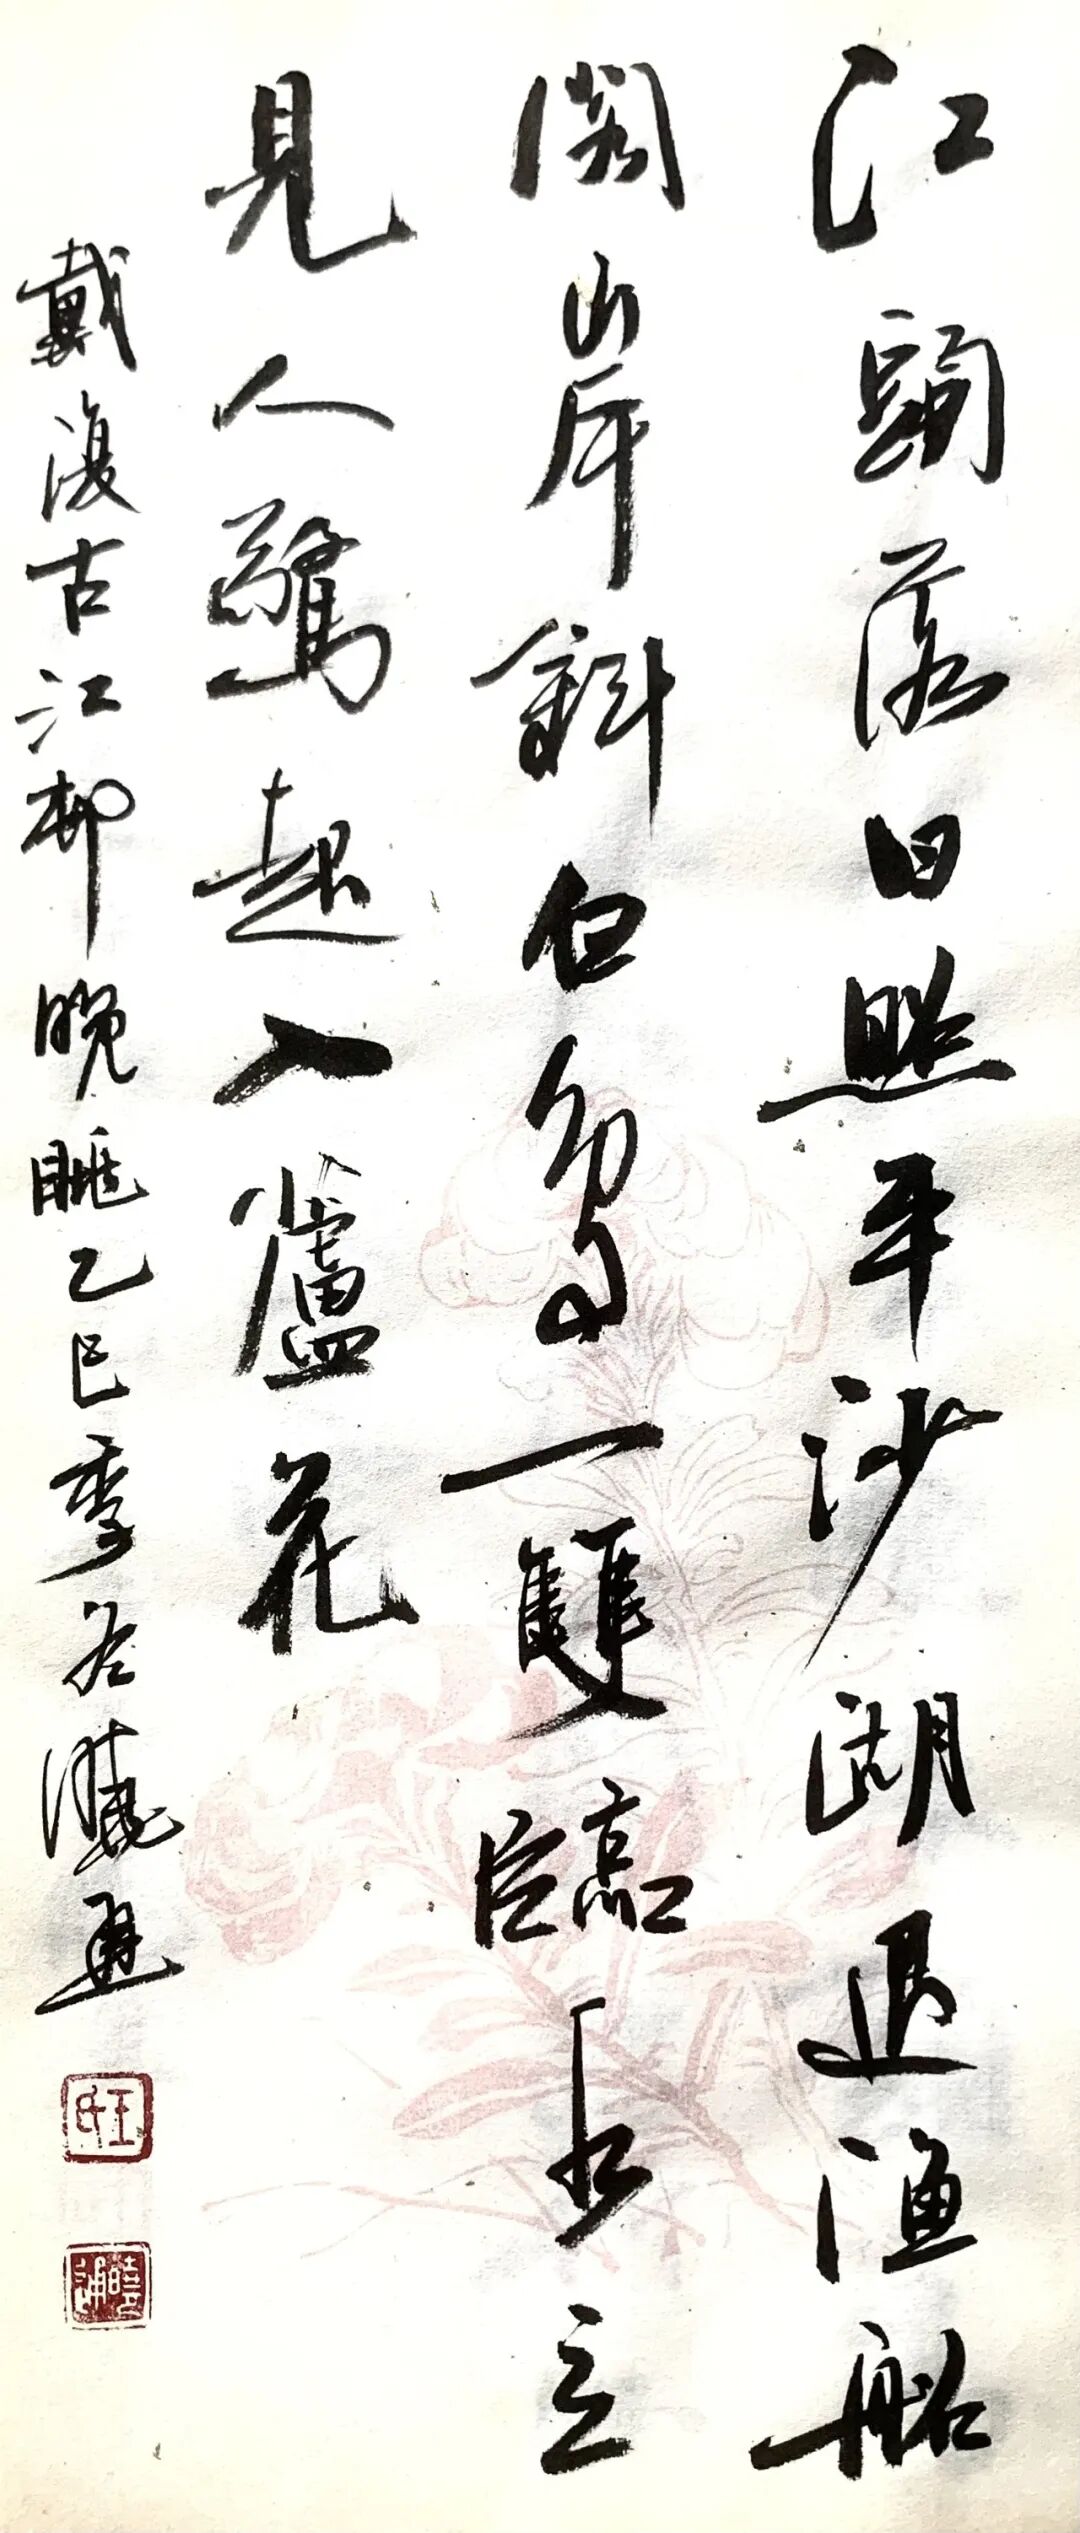 江頭落日照平沙潮退漁船
閣岸斜白鳥一雙臨水立
見人驚起入蘆花
戴復古江邨晚眺乙巳季冬曉通
王氏
曉通